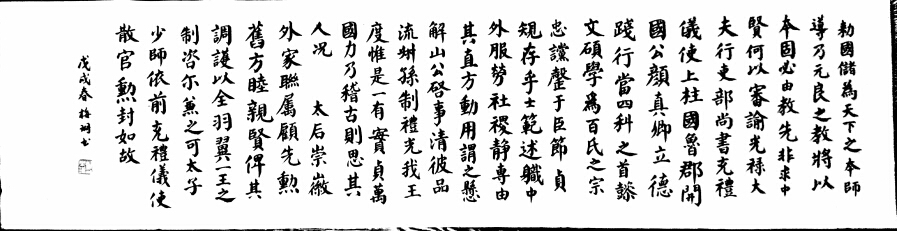 勅國儲為天下之本師
導乃元良之教將以
本固必由教先非求中
賢何以審諭光祿大
夫行吏部尚書充禮
儀使上柱國魯郡開
國公顏真卿立德
踐行當四科之首懿
文碩學為百氏之宗
忠讜罄于臣節貞
規存乎士範述職中
外服勞社稷静專由
其直方動用謂之懸
解山公啓事清彼品
流叔孫制禮光我王
度惟是一有實貞萬
國力乃稽古則思其
人況 太后崇徽
外家聯屬顧先勳
舊方睦親賢俾其
調護以全羽翼一王之
制咨尔兼之可太子
少師依前充禮儀使
散官勳封如故
戊戌春 书